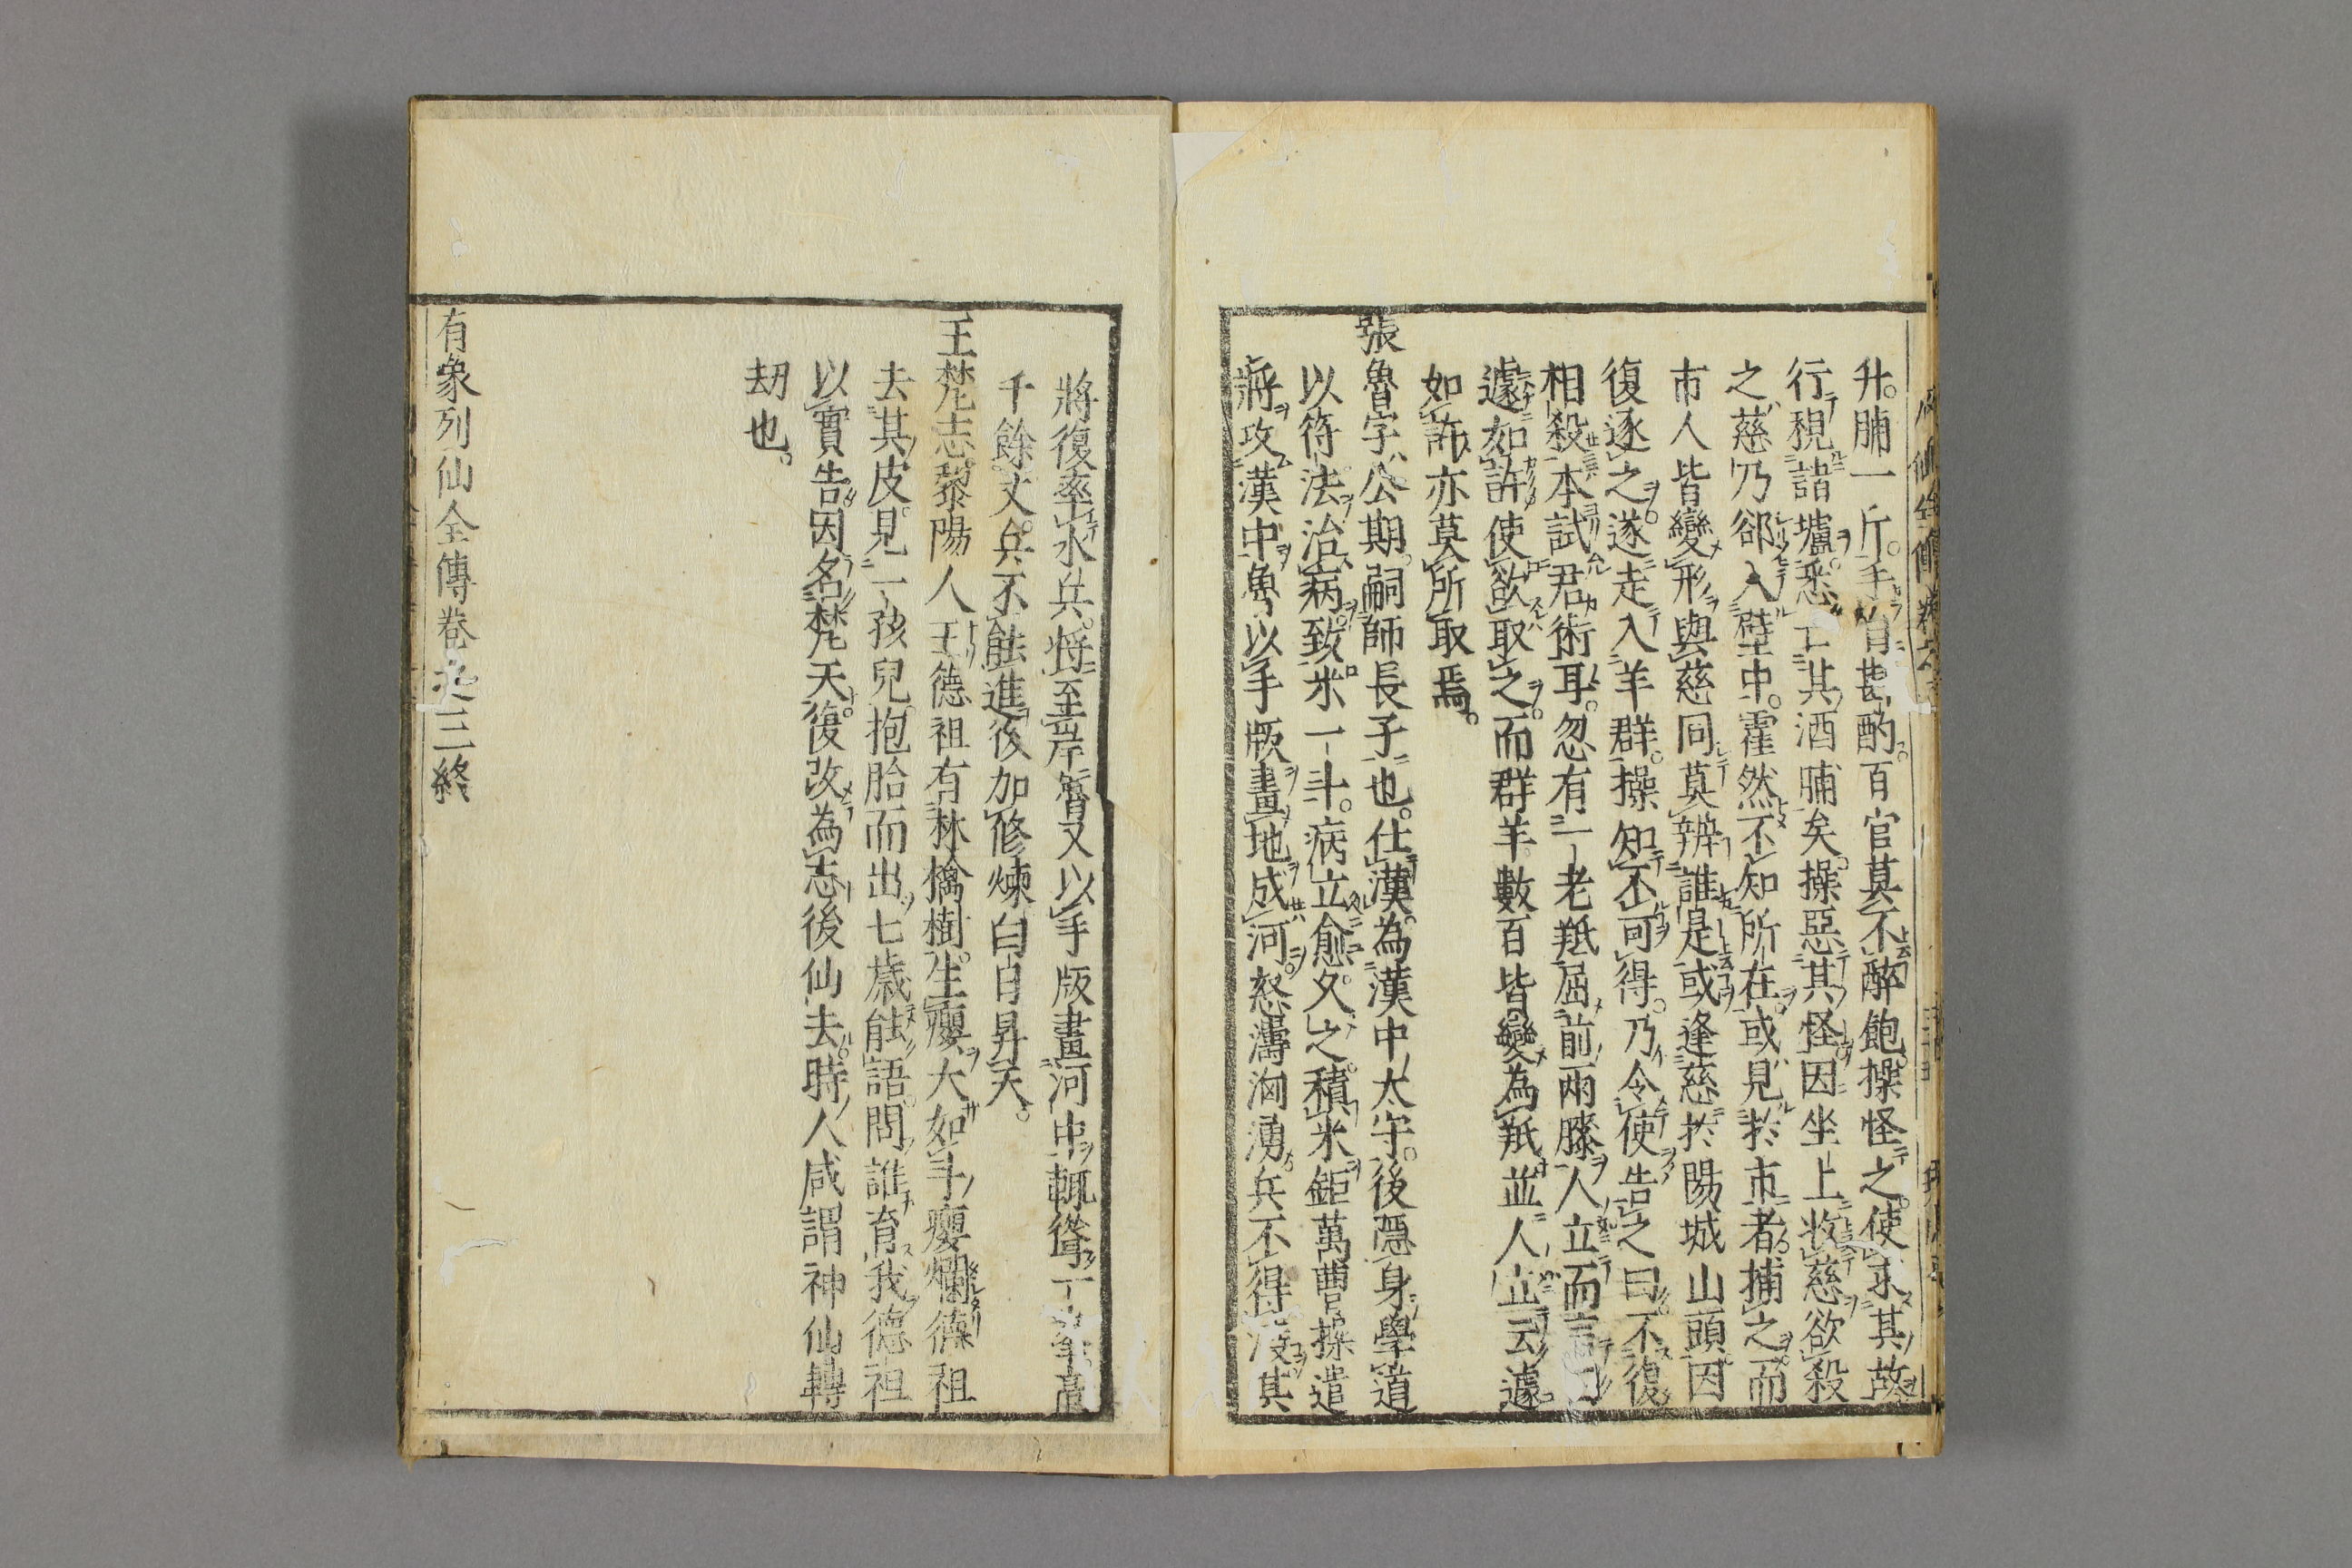 升。脯一斤。手自斟酌。百官莫不醉飽。操怪之。使求其故。
行視諸壚。悉亡其酒脯矣。操惡其怪因坐上收慈欲殺
之慈乃郤入壁中。霍然不知所在。或見於市者捕之。而
市人皆變形與慈同莫辨誰是或逢慈於陽城山頭因
復逐之。遂走入羊群。操知不可得。乃令使告之曰。不復
相殺本試君術耳。忽有一老羝屈前兩膝人立而言曰
遽如許使欲取之。而群羊數百皆變為羝並人立云遽。
如許亦莫所取焉。
張魯字公期。嗣師長子也。仕漢。為漢中太守。後隱身學道
以符法治病。致米一斗。病立愈。久之。積米鉅萬曹操遣
將攻漢中魯以手版畫地成河。怒濤洶湧。兵不得渡其
將復率水兵。將至岸魯又以手版畫河中輒聳一峯。高
千餘丈。兵不能進後加修煉白日昇天。
王梵志。黎陽人王德祖有林檎樹。生癭大如斗癭爛德祖
去其皮。見一孩兒抱胎而出七歲能語。問誰育我德祖
以實告因名梵天。復改為志後仙去。時人咸謂神仙轉
刼也。
有象列仙全傳卷之三終